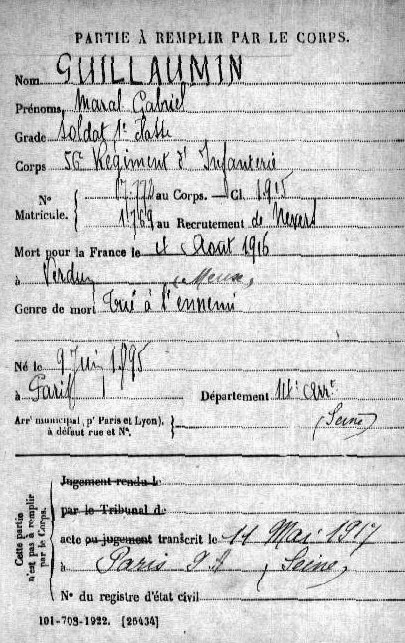 PARTIE À REMPLIR PAR LE CORPS.
Nom GUILLAUMIN
Prénoms Maral Gabriel
Grade Soldat 1e Classe
Corps 56e Régiment d'Infanterie
No Matricule. 17.772 au Corps. — Cl. 1915
11769 au Recrutement de Nevers
Mort pour la France le Aout 1916
à Verdun (Meuse)
Genre de mort Tué à l'ennemi
Né le 9 Juin 1895
à Paris Département 14e Arrt
Arrt municipal (pr Paris et Lyon), à défaut rue et No. (Seine)
Cette partie n'est pas à remplir par le Corps.
Jugement rendu le
par le Tribunal de
acte ou jugement transcrit le 11 Mai 1917
à Paris (Seine)
No du registre d'état civil
101-708-1922. [26434]